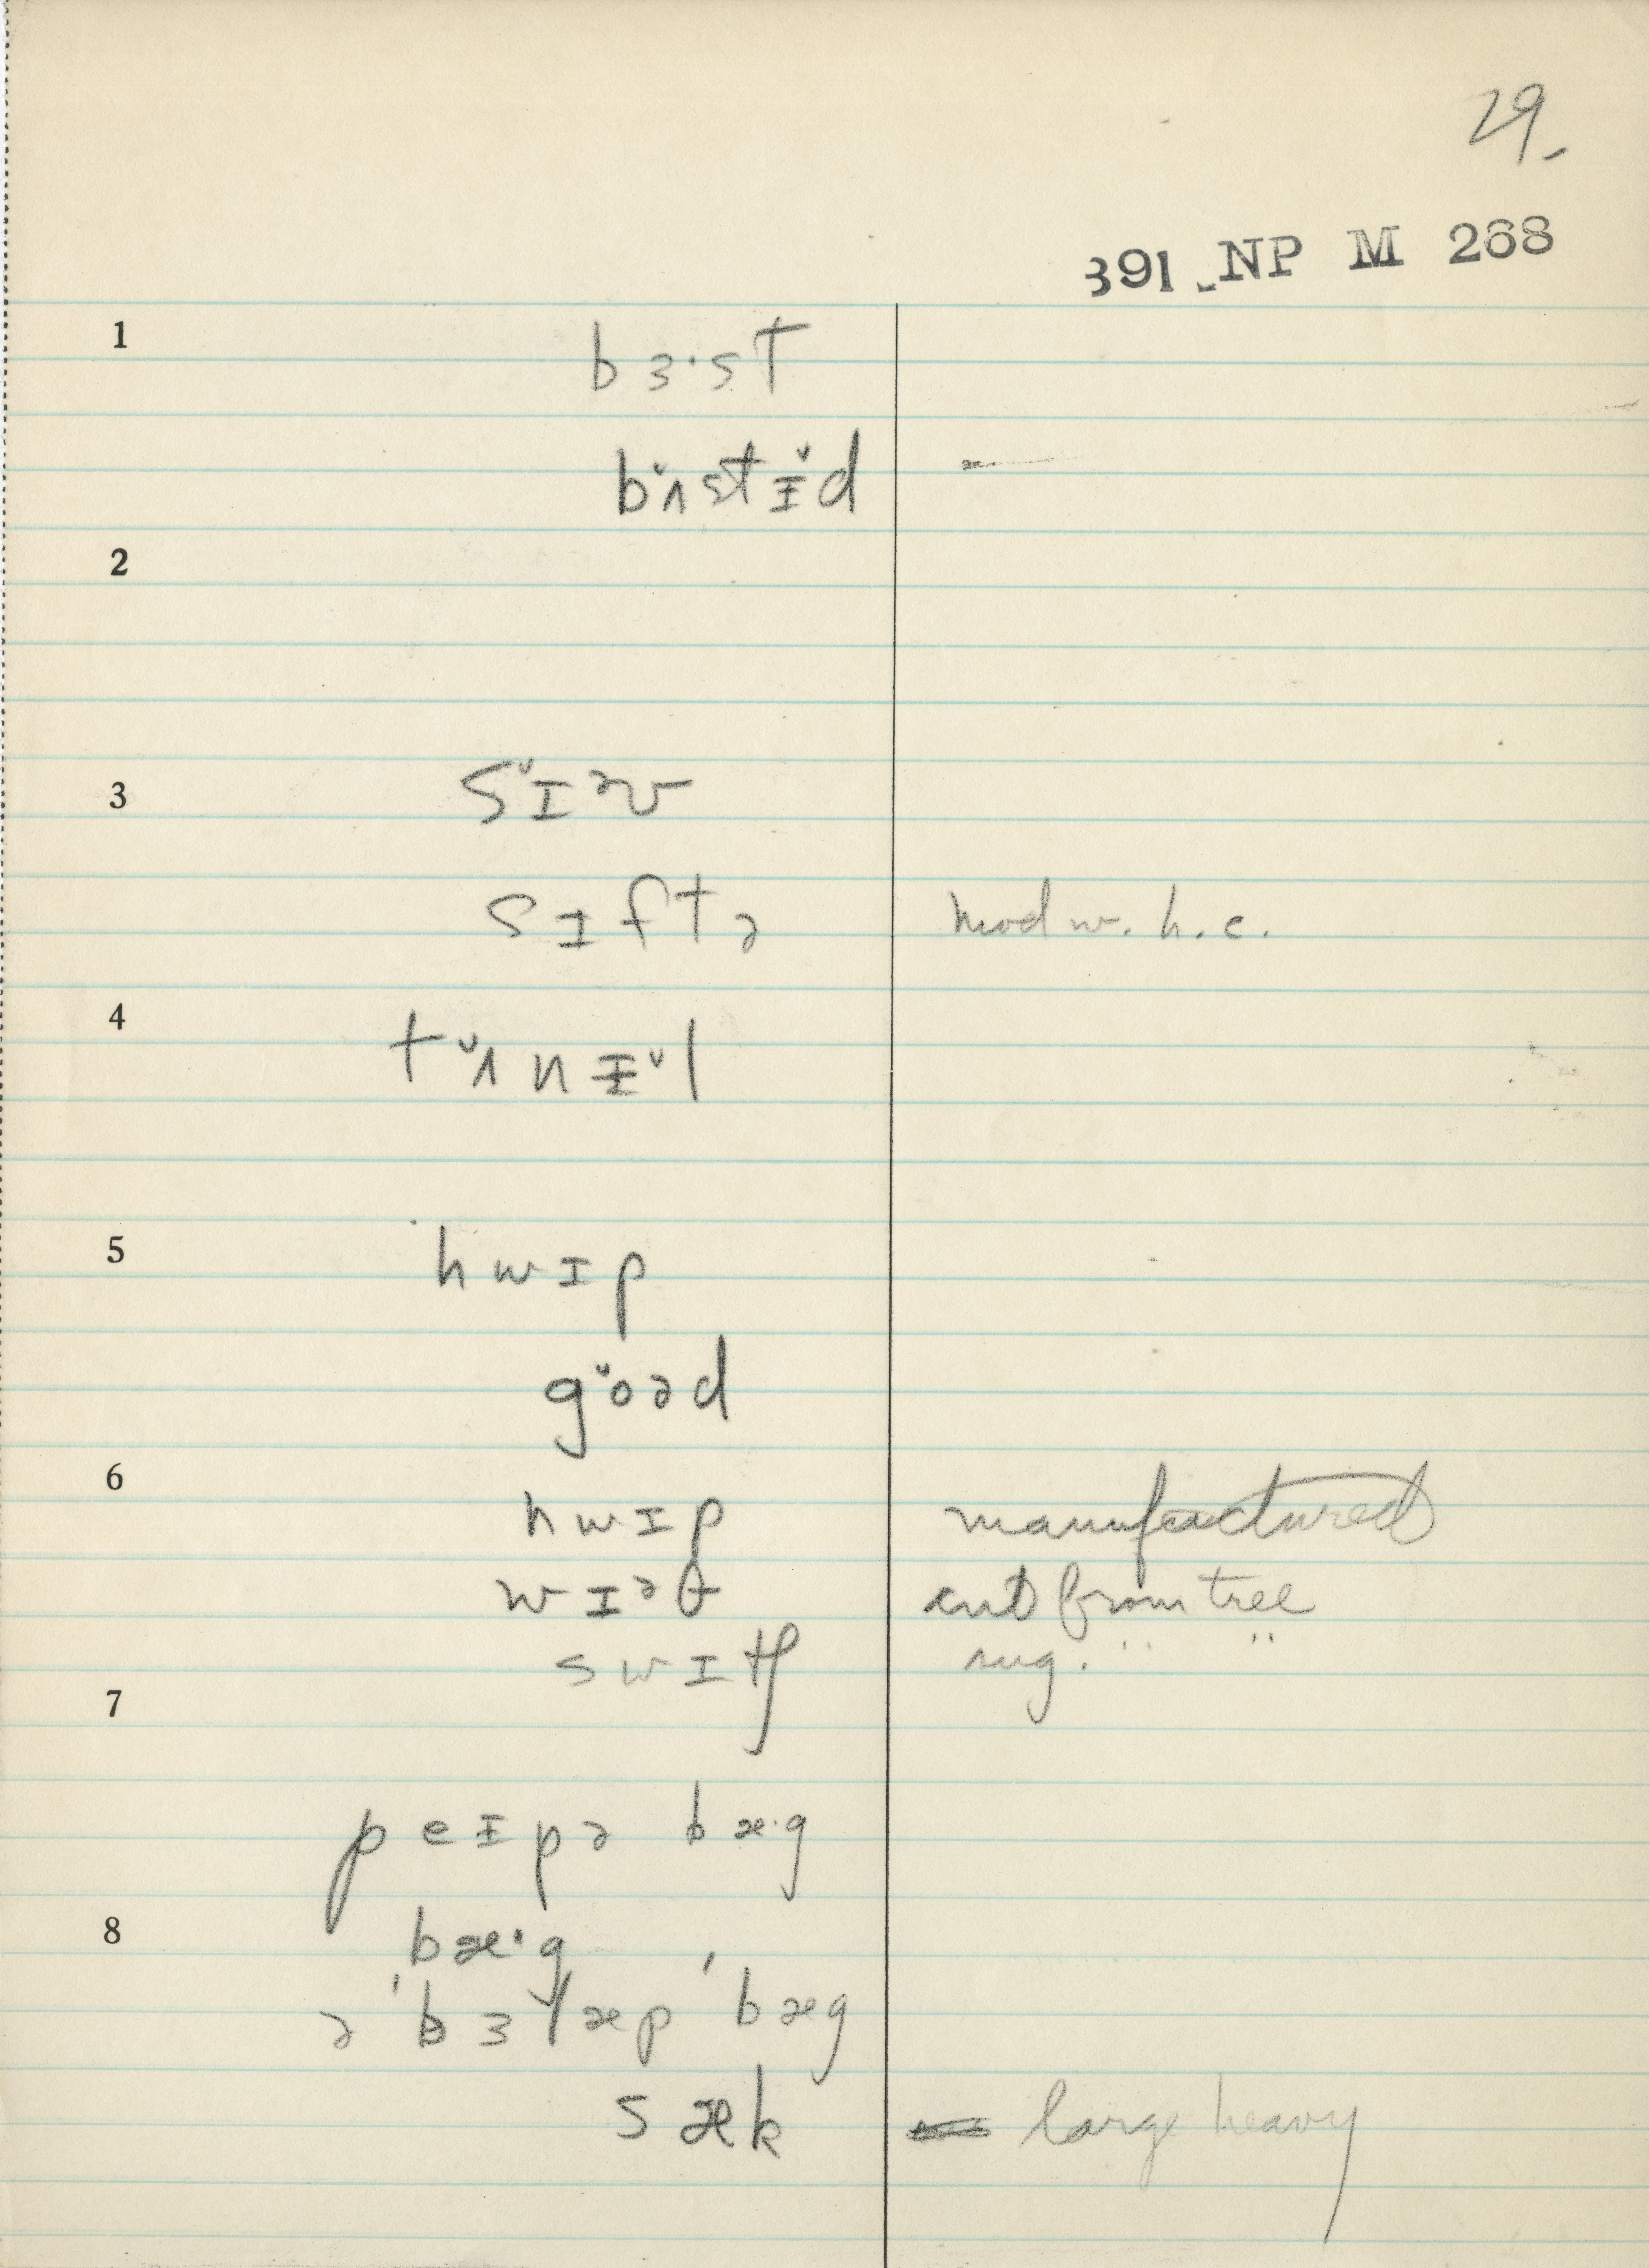 29.
391 NP M 268
1
bɜ·st
bʌ̌stɨ̌d
2
3
sɪ̌ᵊv
sɪftə
mod w. h. c.
4
tʌ̌nɨ̌l
5
hwɪp
gǒəd
6
hwɪp manufactured
wɪᵊθ cut from tree
swɪtʃ sug. " "
7
peɪpə bæ·g
8
bæ·g
ə 'bɜlæp 'bæg
sæk large heavy